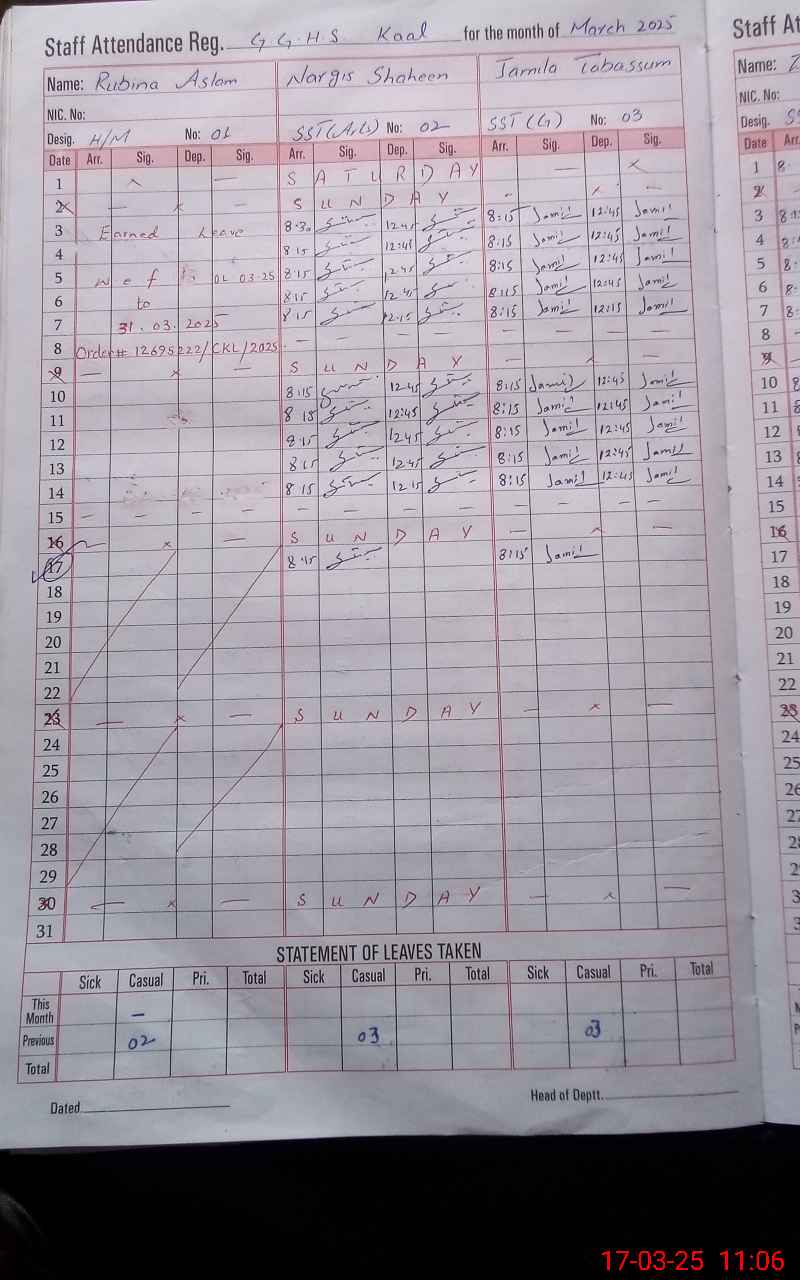 Staff Attendance Reg. G.G.H.S Kaal for the month of March 2025
Name: Rubina Aslam Nargis Shaheen Jamila Tabassum
NIC. No:
Desig. H/M No: 01 SST(Arts) No: 02 SST(G) No: 03
Date Arr. Sig. Dep. Sig. Arr. Sig. Dep. Sig. Arr. Sig. Dep. Sig.
1 × — S A T U R D A Y — ×
2 — × — S U N D A Y — × —
3 Earned Leave 8:30 12:45 8:15 Jamil 12:45 Jamil
4 8:15 12:45 8:15 Jamil 12:45 Jamil
5 w e f 01 03-25 8:15 12:45 8:15 Jamil 12:45 Jamil
6 to 8:15 12:45 8:15 Jamil 12:45 Jamil
7 31.03.2025 8:15 12:15 8:15 Jamil 12:15 Jamil
8 Order# 12695222/CKL/2025 — — — — — — — —
9 — × — S U N D A Y — × —
10 8:15 12:45 8:15 Jamil 12:45 Jamil
11 8:15 12:45 8:15 Jamil 12:45 Jamil
12 8:15 12:45 8:15 Jamil 12:45 Jamil
13 8:15 12:45 8:15 Jamil 12:45 Jamil
14 8:15 12:15 8:15 Jamil 12:45 Jamil
15 — — — — — — — — — — —
16 — × — S U N D A Y — × —
17 8:15 8:15 Jamil
18
19
20
21
22
23 — × — S U N D A Y — × —
24
25
26
27
28
29
30 — × — S U N D A Y — × —
31
STATEMENT OF LEAVES TAKEN
Sick Casual Pri. Total Sick Casual Pri. Total Sick Casual Pri. Total
This Month —
Previous 02 03 03
Total
Dated
Head of Deptt.
Staff At
Name:
NIC. No:
Desig. S
Date Arr.
1 8
2
3 8:1
4 8:
5 8-
6 8-
7 8:
8
9
10 8
11 8
12 8
13 8
14 8
15
16
17
18
19
20
21
22
23
24
25
26
27
17-03-25 11:06